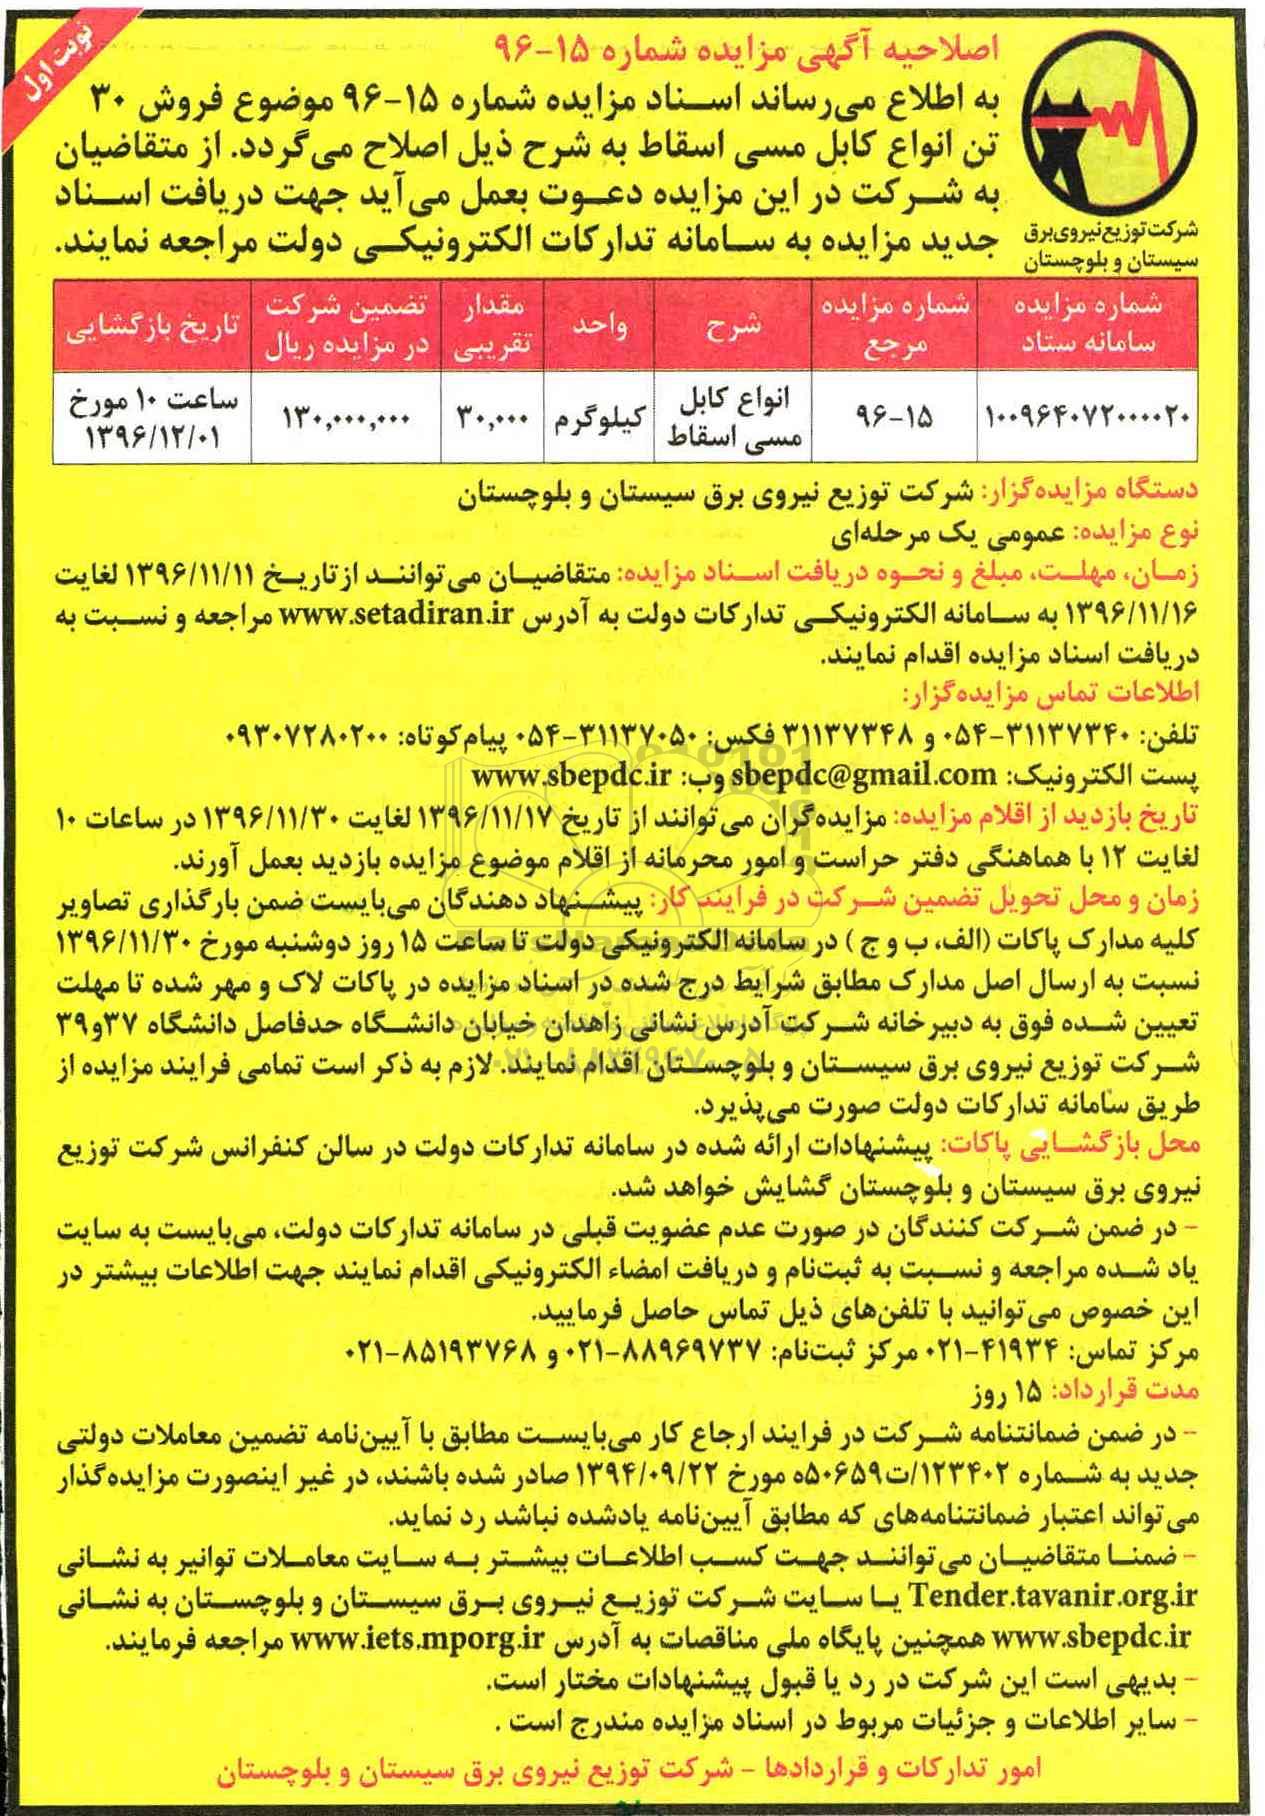 نوبت اول
اصلاحیه آگهی مزایده شماره ۱۵-۹۶
به اطلاع می‌رساند اسناد مزایده شماره ۱۵-۹۶ موضوع فروش ۳۰
تن انواع کابل مسی اسقاط به شرح ذیل اصلاح می‌گردد. از متقاضیان
به شرکت در این مزایده دعوت بعمل می‌آید جهت دریافت اسناد
جدید مزایده به سامانه تدارکات الکترونیکی دولت مراجعه نمایند.
شرکت توزیع نیروی برق
سیستان و بلوچستان
شماره مزایده سامانه ستاد | شماره مزایده مرجع | شرح | واحد | مقدار تقریبی | تضمین شرکت در مزایده ریال | تاریخ بازگشایی
۱۰۰۹۶۴۰۷۲۰۰۰۰۲۰ | ۹۶-۱۵ | انواع کابل مسی اسقاط | کیلوگرم | ۳۰,۰۰۰ | ۱۳۰,۰۰۰,۰۰۰ | ساعت ۱۰ مورخ ۱۳۹۶/۱۲/۰۱
دستگاه مزایده‌گزار: شرکت توزیع نیروی برق سیستان و بلوچستان
نوع مزایده: عمومی یک مرحله‌ای
زمان، مهلت، مبلغ و نحوه دریافت اسناد مزایده: متقاضیان می‌توانند از تاریخ ۱۳۹۶/۱۱/۱۱ لغایت
۱۳۹۶/۱۱/۱۶ به سامانه الکترونیکی تدارکات دولت به آدرس www.setadiran.ir مراجعه و نسبت به
دریافت اسناد مزایده اقدام نمایند.
اطلاعات تماس مزایده‌گزار:
تلفن: ۳۱۱۳۷۳۴۰-۰۵۴ و ۳۱۱۳۷۳۴۸ فکس: ۳۱۱۳۷۰۵۰-۰۵۴ پیام کوتاه: ۰۹۳۰۷۲۸۰۲۰۰
پست الکترونیک: sbepdc@gmail.com وب: www.sbepdc.ir
تاریخ بازدید از اقلام مزایده: مزایده‌گران می‌توانند از تاریخ ۱۳۹۶/۱۱/۱۷ لغایت ۱۳۹۶/۱۱/۳۰ در ساعات ۱۰
لغایت ۱۲ با هماهنگی دفتر حراست و امور محرمانه از اقلام موضوع مزایده بازدید بعمل آورند.
زمان و محل تحویل تضمین شرکت در فرایند کار: پیشنهاد دهندگان می‌بایست ضمن بارگذاری تصاویر
کلیه مدارک پاکات (الف، ب و ج) در سامانه الکترونیکی دولت تا ساعت ۱۵ روز دوشنبه مورخ ۱۳۹۶/۱۱/۳۰
نسبت به ارسال اصل مدارک مطابق شرایط درج شده در اسناد مزایده در پاکات لاک و مهر شده تا مهلت
تعیین شده فوق به دبیرخانه شرکت آدرس نشانی زاهدان خیابان دانشگاه حدفاصل دانشگاه ۳۷و۳۹
شرکت توزیع نیروی برق سیستان و بلوچستان اقدام نمایند. لازم به ذکر است تمامی فرایند مزایده از
طریق سامانه تدارکات دولت صورت می‌پذیرد.
محل بازگشایی پاکات: پیشنهادات ارائه شده در سامانه تدارکات دولت در سالن کنفرانس شرکت توزیع
نیروی برق سیستان و بلوچستان گشایش خواهد شد.
- در ضمن شرکت کنندگان در صورت عدم عضویت قبلی در سامانه تدارکات دولت، می‌بایست به سایت
یاد شده مراجعه و نسبت به ثبت‌نام و دریافت امضاء الکترونیکی اقدام نمایند جهت اطلاعات بیشتر در
این خصوص می‌توانید با تلفن‌های ذیل تماس حاصل فرمایید.
مرکز تماس: ۴۱۹۳۴-۰۲۱ مرکز ثبت‌نام: ۸۸۹۶۹۷۳۷-۰۲۱ و ۸۵۱۹۳۷۶۸-۰۲۱
مدت قرارداد: ۱۵ روز
- در ضمن ضمانتنامه شرکت در فرایند ارجاع کار می‌بایست مطابق با آیین‌نامه تضمین معاملات دولتی
جدید به شماره ۱۲۳۴۰۲/ت۵۰۶۵۹ه مورخ ۱۳۹۴/۰۹/۲۲ صادر شده باشند، در غیر اینصورت مزایده‌گذار
می‌تواند اعتبار ضمانتنامه‌های که مطابق آیین‌نامه یادشده نباشد رد نماید.
- ضمنا متقاضیان می‌توانند جهت کسب اطلاعات بیشتر به سایت معاملات توانیر به نشانی
Tender.tavanir.org.ir یا سایت شرکت توزیع نیروی برق سیستان و بلوچستان به نشانی
www.sbepdc.ir همچنین پایگاه ملی مناقصات به آدرس www.iets.mporg.ir مراجعه فرمایند.
- بدیهی است این شرکت در رد یا قبول پیشنهادات مختار است.
- سایر اطلاعات و جزئیات مربوط در اسناد مزایده مندرج است .
امور تدارکات و قراردادها - شرکت توزیع نیروی برق سیستان و بلوچستان